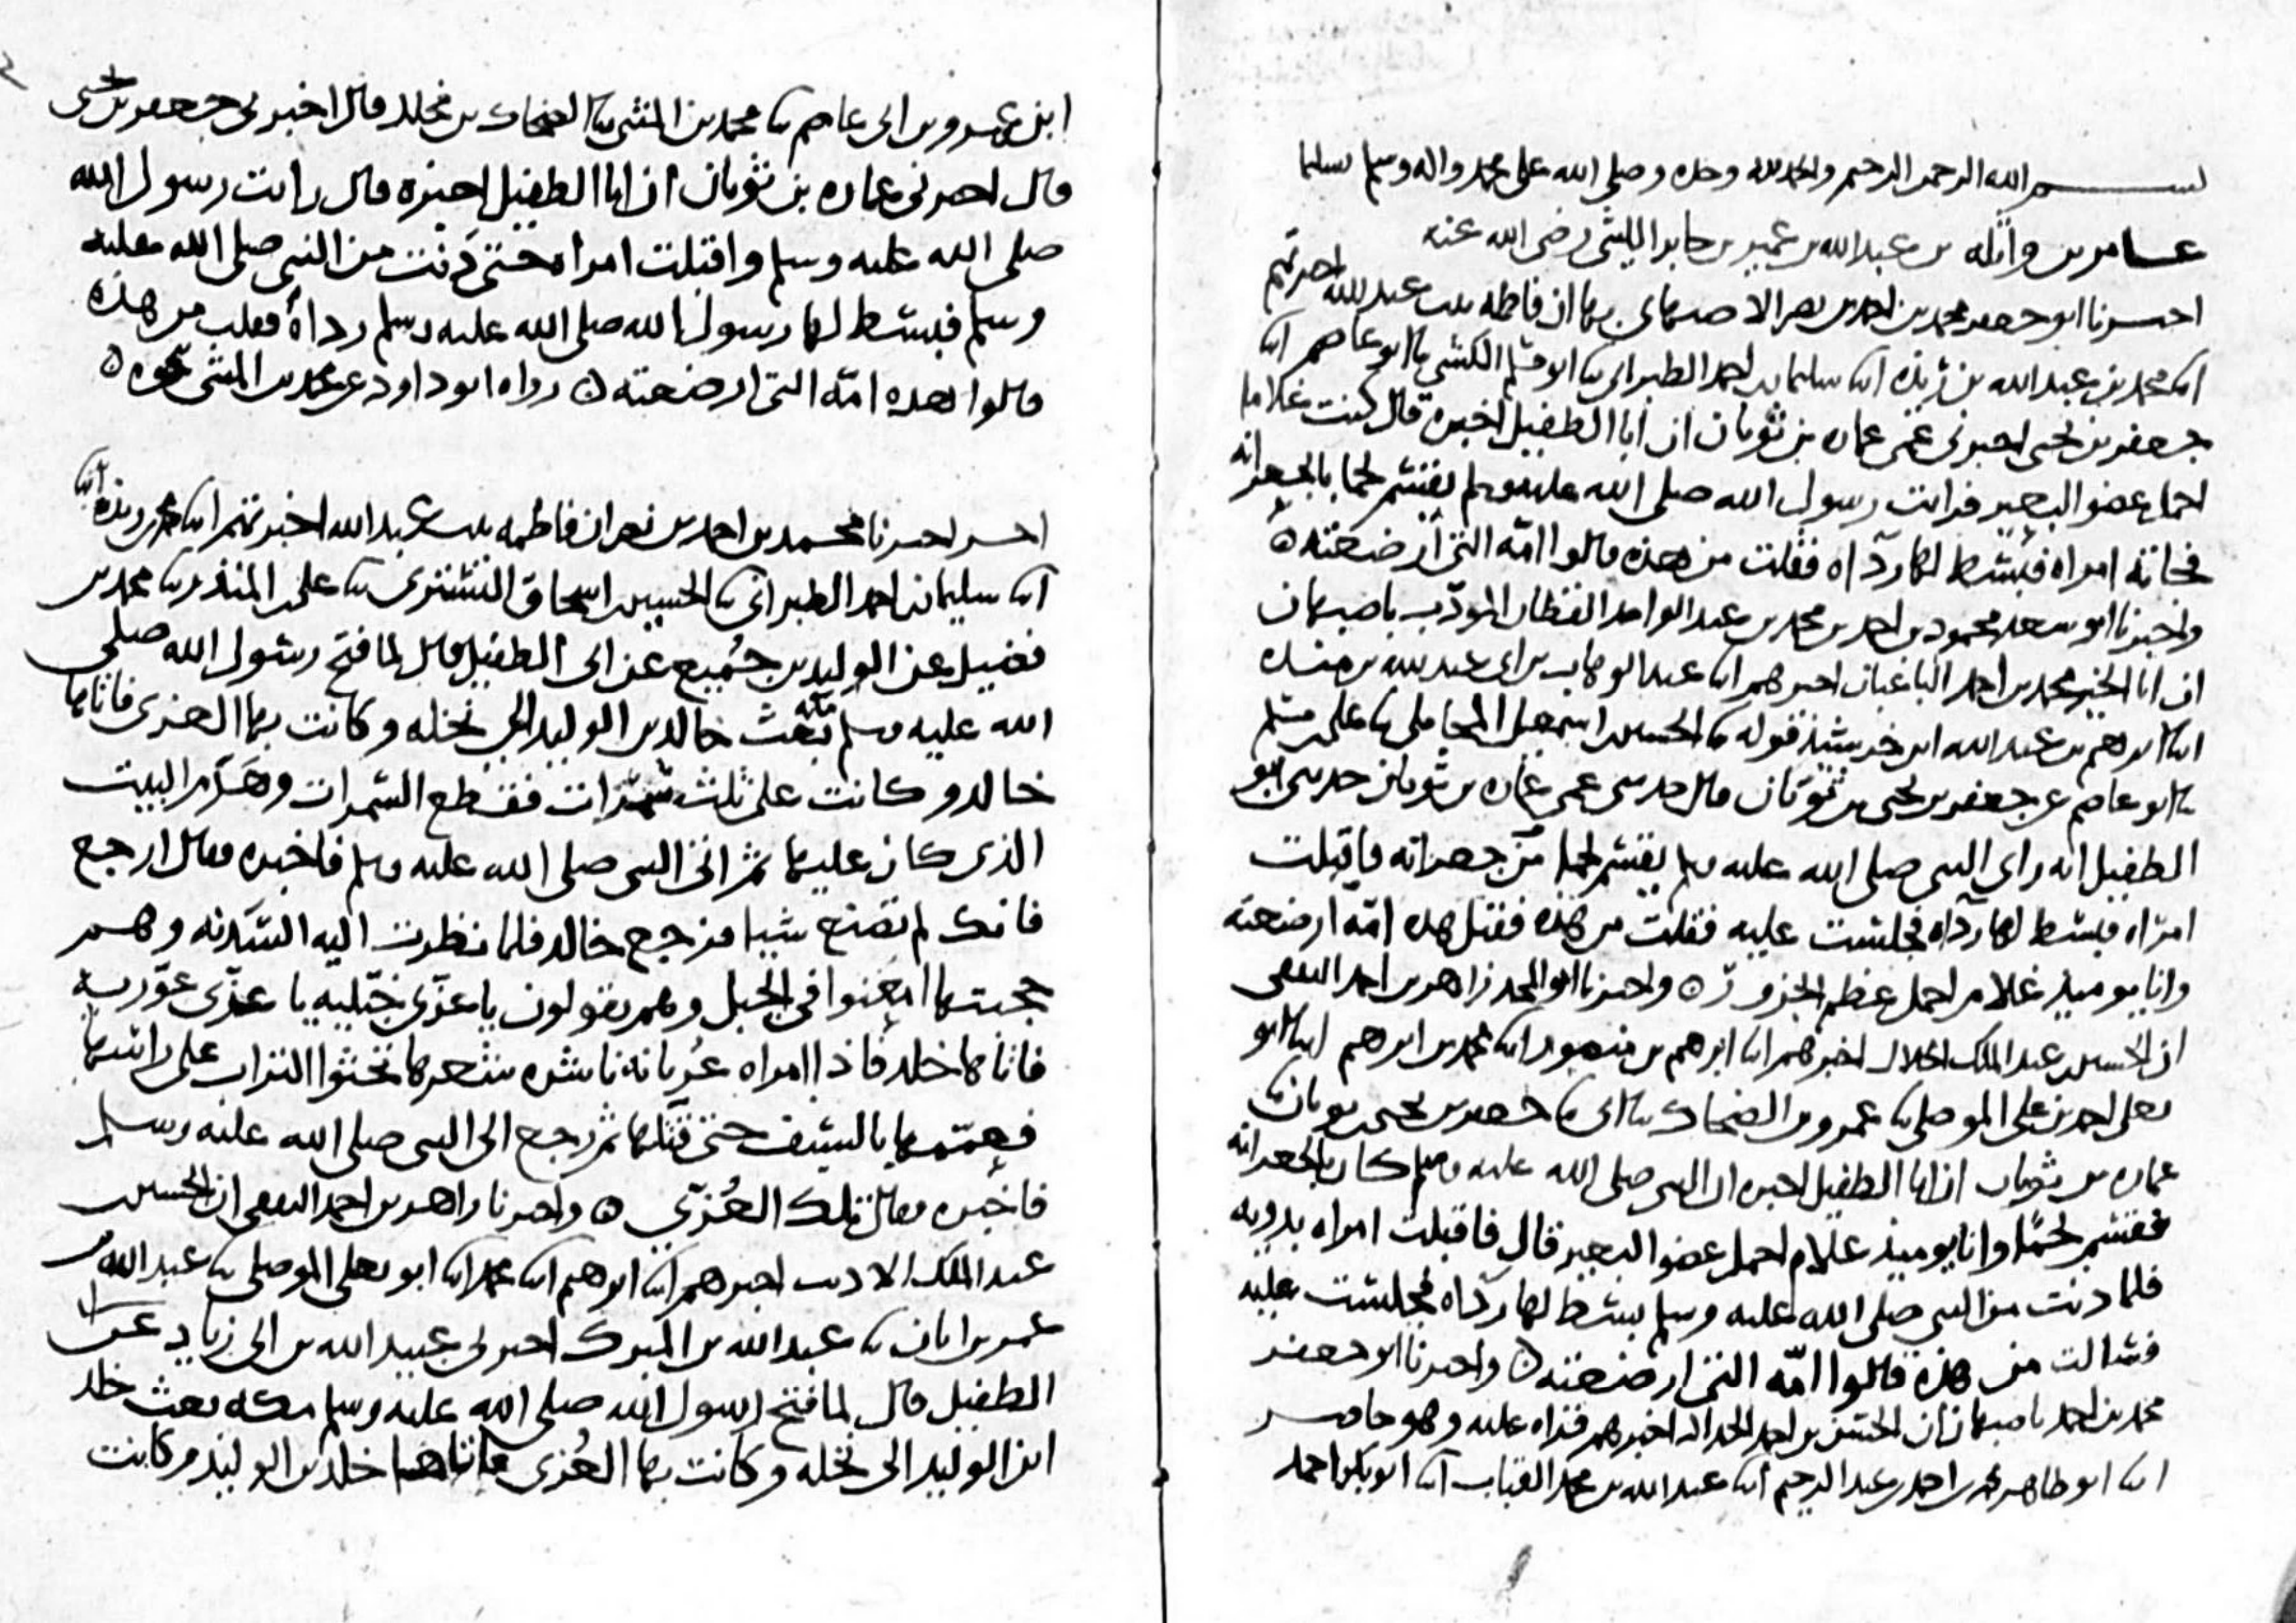 بسم الله الرحمن الرحيم والحمد لله وحده وصلى الله على محمد واله وسلم تسليما
عامر بن واثله بن عبد الله بن عمير بن جابر الليثي رضي الله عنه
اخبرنا ابو جعفر محمد بن احمد بن نصر الاصبهاني بها ان فاطمه بنت عبد الله اخبرتهم
ابنا محمد بن عبد الله بن ريذه ابنا سليمان بن احمد الطبراني ثنا ابو مسلم الكشي ثنا ابو عاصم ابنا
جعفر بن يحيى اخبرني عمي عماره بن ثوبان ان ابا الطفيل اخبره قال كنت غلاما
احمل عضو البعير فرايت رسول الله صلى الله عليه وسلم يقسم لحما بالجعرانه
فجاته امراه فبسط لها رداه فقلت من هذه قالوا امه التي ارضعته ٥
واخبرنا ابو سعد محمود بن احمد بن محمد بن عبد الواحد القطان المؤدب باصبهان
ان ابا الخير محمد بن احمد الباغبان اخبرهم ابنا عبد الوهاب بن ابي عبد الله بن منده
ابنا ابرهيم بن عبد الله ابن خرشيذ قوله ثنا الحسين بن اسمعيل المحاملي ثنا علي بن مسلم
ثنا ابو عاصم عن جعفر بن يحيى بن ثوبان قال حدثني عمي عماره بن ثوبان حدثني ابو
الطفيل انه راى النبي صلى الله عليه وسلم يقسم لحما من جعرانه فاقبلت
امراه فبسط لها رداه فجلست عليه فقلت من هذه فقيل هذه امه ارضعته
وانا يوميذ غلام احمل عظم الجزور ٥ واخبرنا ابو المجد زاهر بن احمد الثقفي
ان الحسين بن عبد الملك الخلال اخبرهم ابنا ابرهيم بن منصور ابنا محمد بن ابرهيم ابنا ابو
يعلى احمد بن علي الموصلي ثنا عمرو بن الضحاك ثنا ابي ثنا جعفر بن يحيى بن ثوبان ثنا
عماره بن ثوبان ان ابا الطفيل اخبره ان النبي صلى الله عليه وسلم كان بالجعرانه
فقسم لحما وانا يوميذ غلام احمل عضو البعير قال فاقبلت امراه بدويه
فلما دنت من النبي صلى الله عليه وسلم بسط لها رداه فجلست عليه
فسالت من هذه قالوا امه التي ارضعته ٥ واخبرنا ابو جعفر
محمد بن احمد باصبهان ان الحسن بن احمد الحداد اخبرهم قراه عليه وهو حاضر
ابنا ابو طاهر محمد بن احمد بن عبد الرحيم ابنا عبد الله بن محمد القباب ابنا ابو بكر احمد
ابن عمرو بن ابي عاصم ثنا محمد بن المثنى ثنا الضحاك بن مخلد قال اخبرني جعفر بن يحيى
قال اخبرني عماره بن ثوبان ان ابا الطفيل اخبره قال رايت رسول الله
صلى الله عليه وسلم واقبلت امراه حتى دنت من النبي صلى الله عليه
وسلم فبسط لها رسول الله صلى الله عليه وسلم رداه فقلت من هذه
قالوا هذه امه التي ارضعته ٥ رواه ابو داود عن محمد بن المثنى نحوه ٥
اخبرنا محمد بن احمد بن نصر ان فاطمه بنت عبد الله اخبرتهم ابنا محمد بن ريذه
ابنا سليمان بن احمد الطبراني ثنا الحسين بن اسحاق التستري ثنا علي بن المنذر ثنا محمد بن
فضيل عن الوليد بن جميع عن ابي الطفيل قال لما فتح رسول الله صلى
الله عليه وسلم مكه بعث خالد بن الوليد الى نخله وكانت بها العزى فاتاها
خالد وكانت على ثلث سمرات فقطع السمرات وهدم البيت
الذي كان عليها ثم اتى النبي صلى الله عليه وسلم فاخبره فقال ارجع
فانك لم تصنع شيا فرجع خالد فلما نظرت اليه السدنه وهم
حجبتها امعنوا في الجبل وهم يقولون يا عزى خبليه يا عزى عوريه
فاتاها خلد فاذا امراه عريانه ناشره شعرها تحثوا التراب على راسها
فعممها بالسيف حتى قتلها ثم رجع الى النبي صلى الله عليه وسلم
فاخبره فقال تلك العزى ٥ واخبرنا زاهر بن احمد الثقفي ان الحسين بن
عبد الملك الاديب اخبرهم ابنا ابرهيم ابنا محمد ابنا ابو يعلى الموصلي ثنا عبد الله بن
عمر بن ابان ثنا عبد الله بن المبرك اخبرني عبيد الله بن ابي زياد عن ابي
الطفيل قال لما فتح رسول الله صلى الله عليه وسلم مكه بعث خلد
ابن الوليد الى نخله وكانت بها العزى فاتاها خلد بن الوليد وكانت